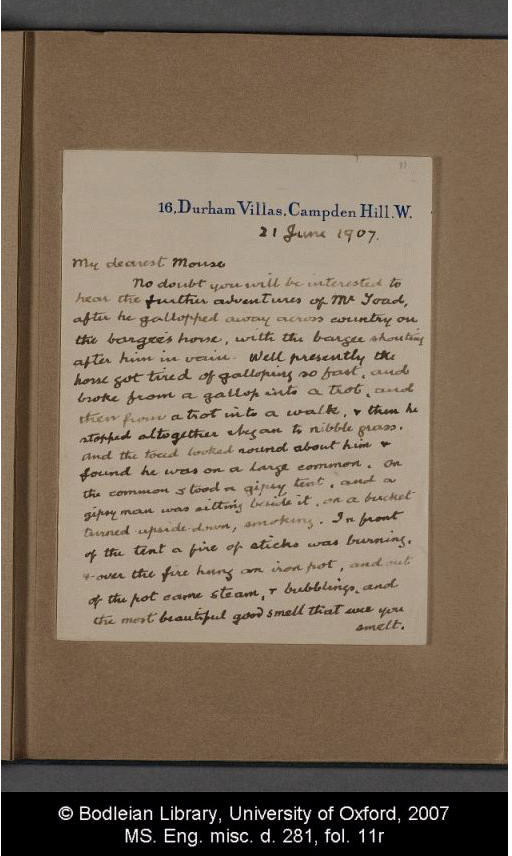 11
16, Durham Villas, Campden Hill. W.
21 June 1907.
My dearest Mouse
No doubt you will be interested to
hear the further adventures of Mr Toad,
after he gallopped away across country on
the bargee's horse, with the bargee shouting
after him in vain. Well presently the
horse got tired of galloping so fast, and
broke from a gallop into a trot, and
then from a trot into a walk, & then he
stopped altogether & began to nibble grass.
And the toad looked round about him &
found he was on a large common. On
the common stood a gipsy tent, and a
gipsy man was sitting beside it, on a bucket
turned upside-down, smoking. In front
of the tent a fire of sticks was burning,
& over the fire hung an iron pot, and out
of the pot came steam, & bubblings, and
the most beautiful good smell that ever you
smelt.
© Bodleian Library, University of Oxford, 2007
MS. Eng. misc. d. 281, fol. 11r